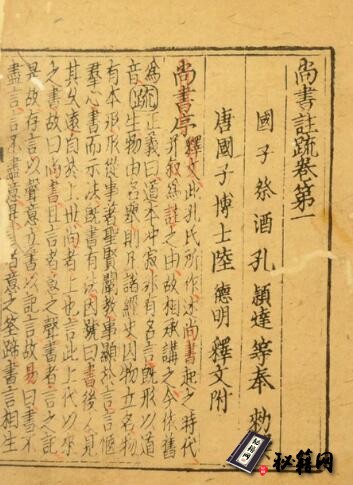 尚書註疏卷第一
國子祭酒孔穎達等奉勑
唐國子博士陸德明釋文附
尚書序 釋文此孔氏所作述尚書起之時代
并敘爲註之由故相承講之今依舊
爲音 疏 正義曰道本沖寂非有名言既形以道
生物由名舉則凡諸經史因物立名物
有本形形從事著聖賢闡教事顯於言言愜
羣心書而示法既書有法因號曰書後人見
其久遠自於上世尚者上也言此上代以來
之書故曰尚書且言者意之聲書者言之記
是故存言以聲意立書以記言故易曰書不
盡言言不盡意是言者意之筌蹄書言相生
秘籍网